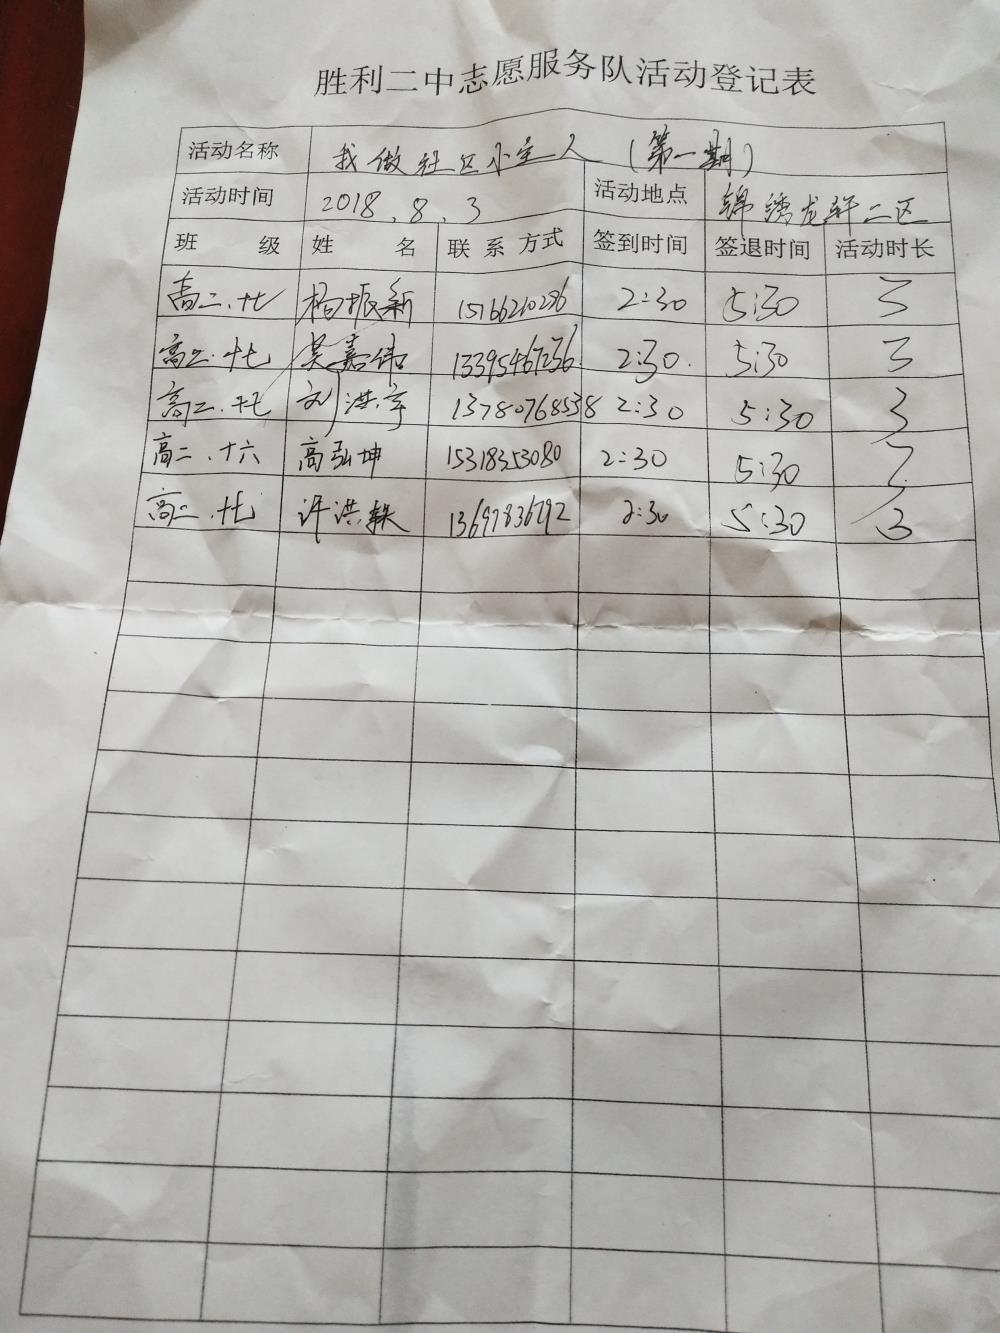 胜利二中志愿服务队活动登记表
活动名称 我做社区小主人（第一期）
活动时间 2018.8.3 活动地点 锦绣龙轩二区
班 级 姓 名 联系方式 签到时间 签退时间 活动时长
高二.十七 杨振新 15166210286 2:30 5:30 3
高二.十七 吴嘉伟 13395467236 2:30. 5:30 3
高二.十七 刘洪宇 13780768538 2:30 5:30 3
高二.十六 高弘坤 15318353080 2:30 5:30 3
高二.十七 许洪轶 13697836792 2:30 5:30 3